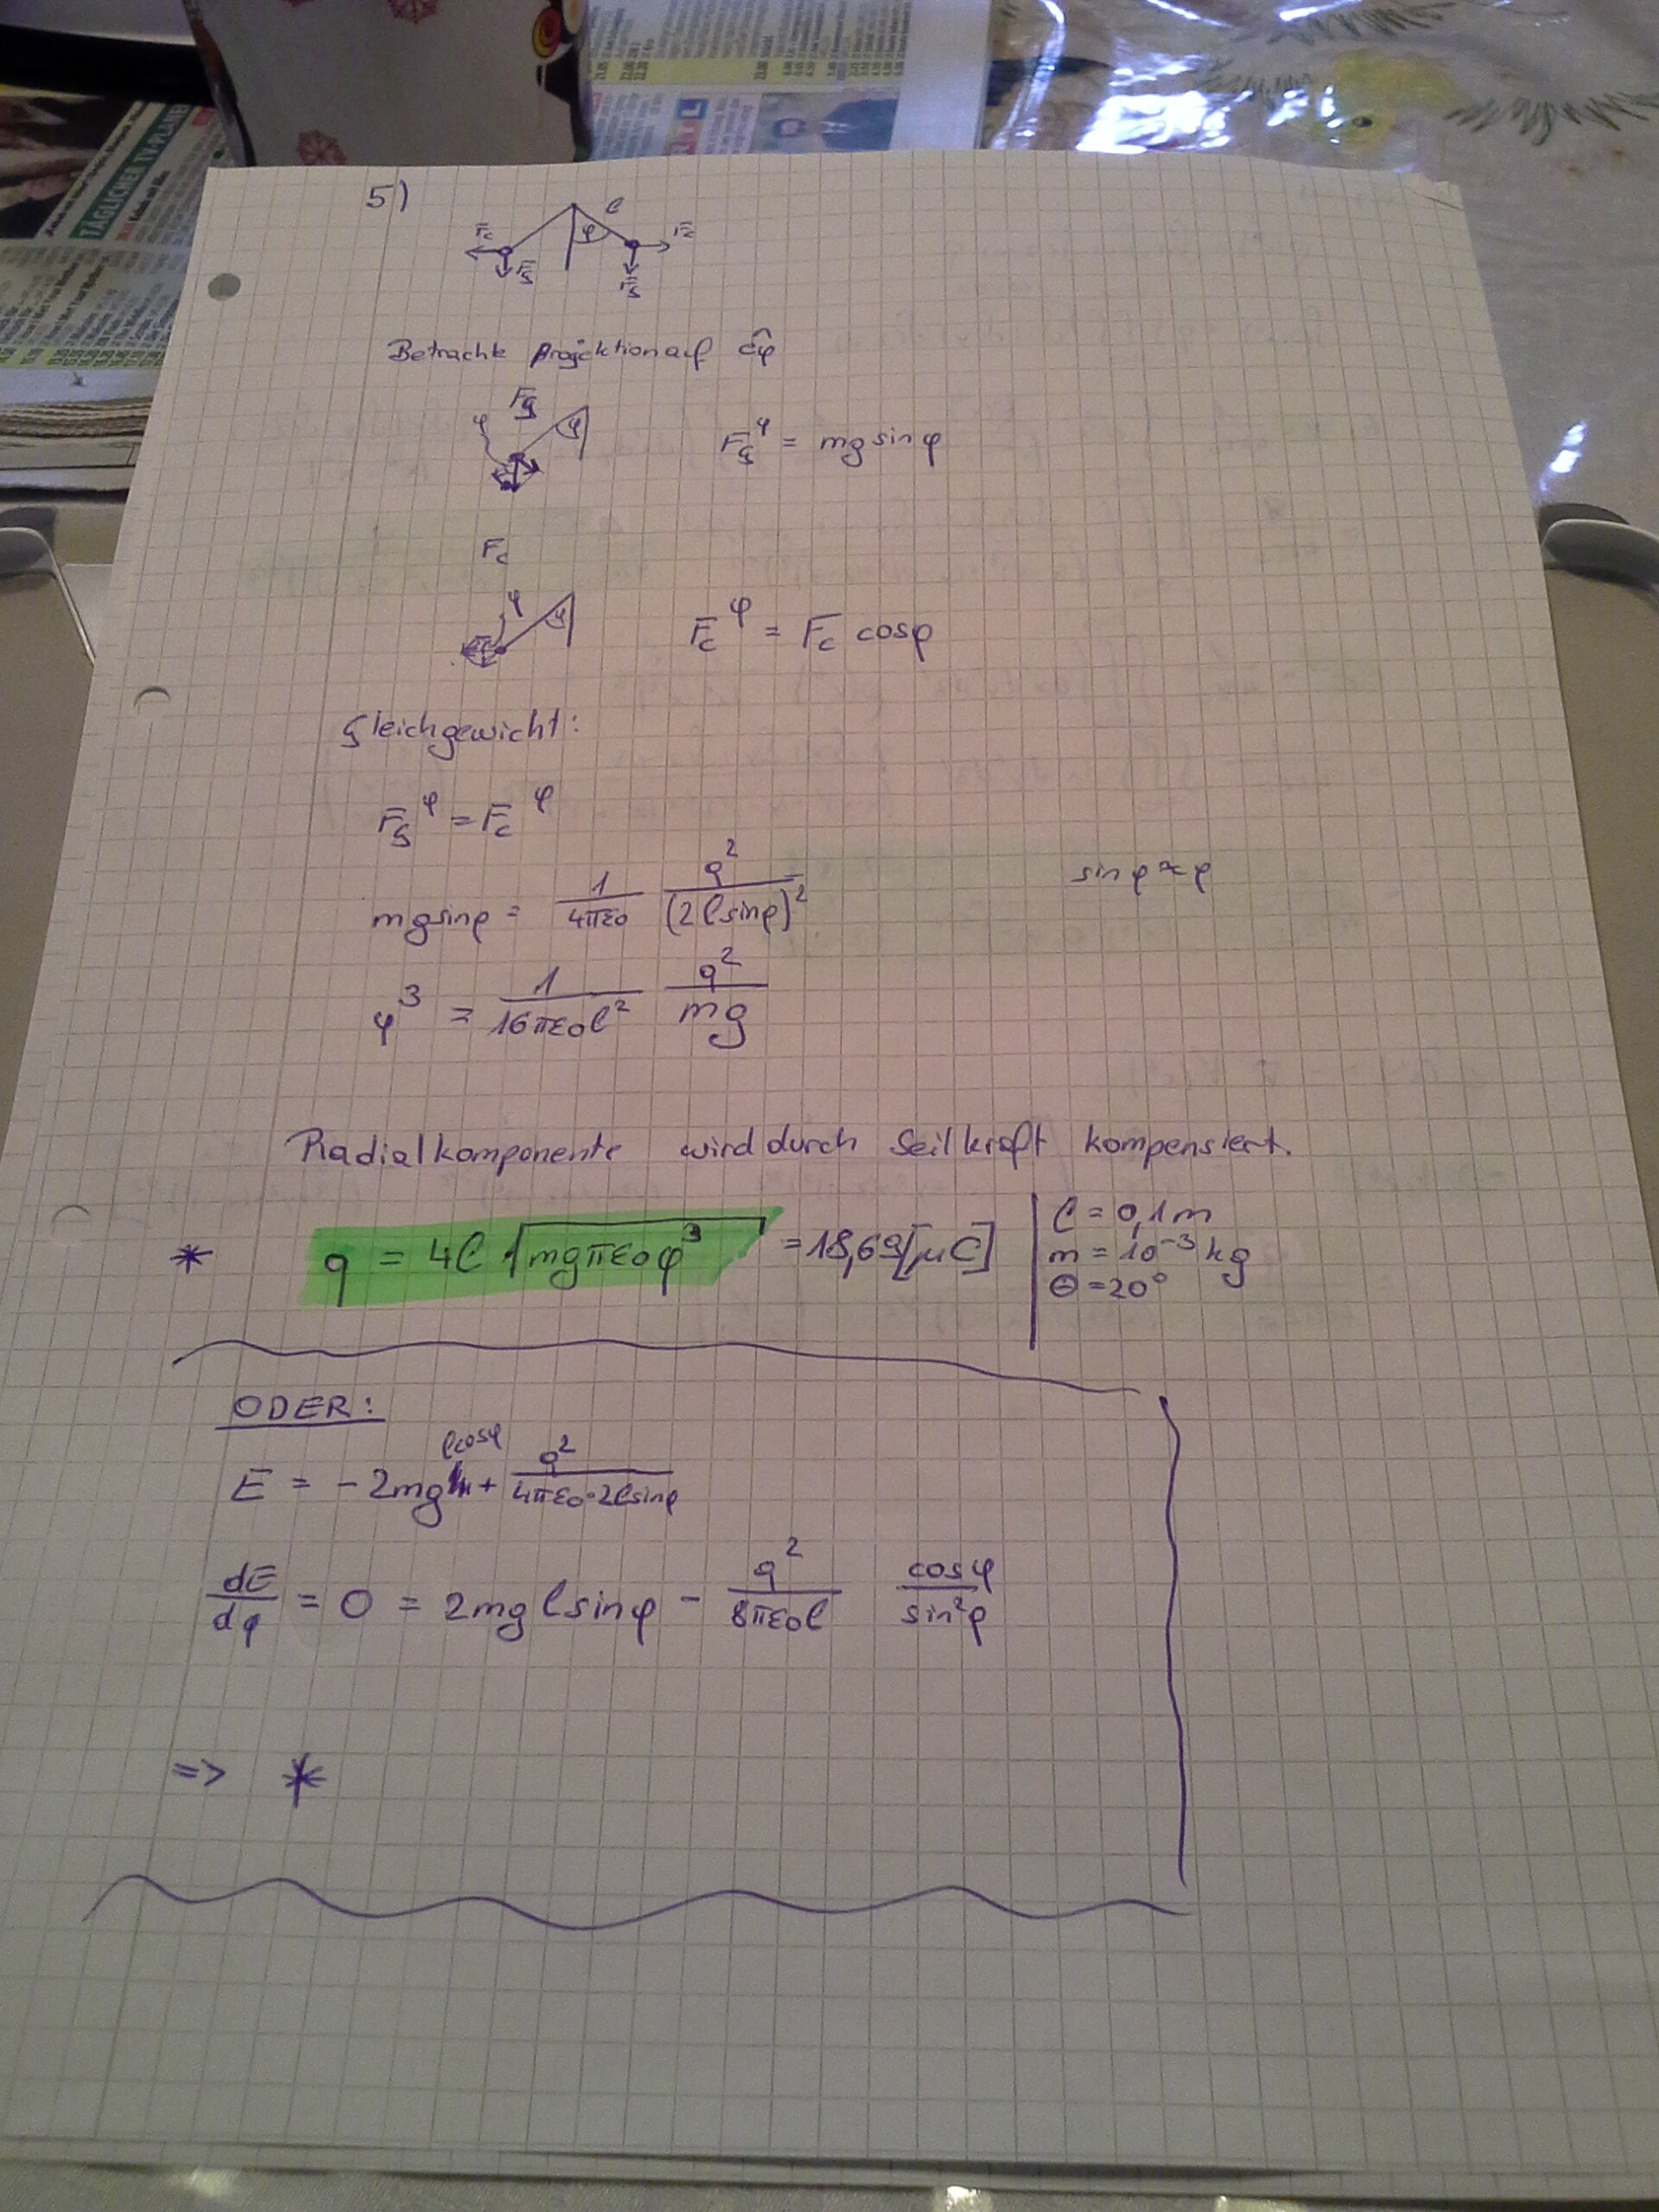 TÄGLICHER TV-PLANER
5)
l
F_c φ F_c
F_g F_g
Betrachte Projektion auf ê_φ
F_g
φ φ
F_g^φ = mg sin φ
F_c
φ φ
F_c^φ = F_c cosφ
Gleichgewicht:
F_g^φ = F_c^φ
mg sinφ = 1/(4πε0) q²/(2l sinφ)² sin φ ≈ φ
φ³ = 1/(16πε0l²) q²/(mg)
Radialkomponente wird durch Seilkraft kompensiert.
* q = 4l √(mgπε0φ³) = 18,69[µC] | l = 0,1m
m = 10⁻³ kg
Θ = 20°
ODER:
E = -2mg lcosφ + q²/(4πε0·2lsinφ)
dE/dφ = 0 = 2mg l sinφ - q²/(8πε0l) cosφ/sin²φ
=> *